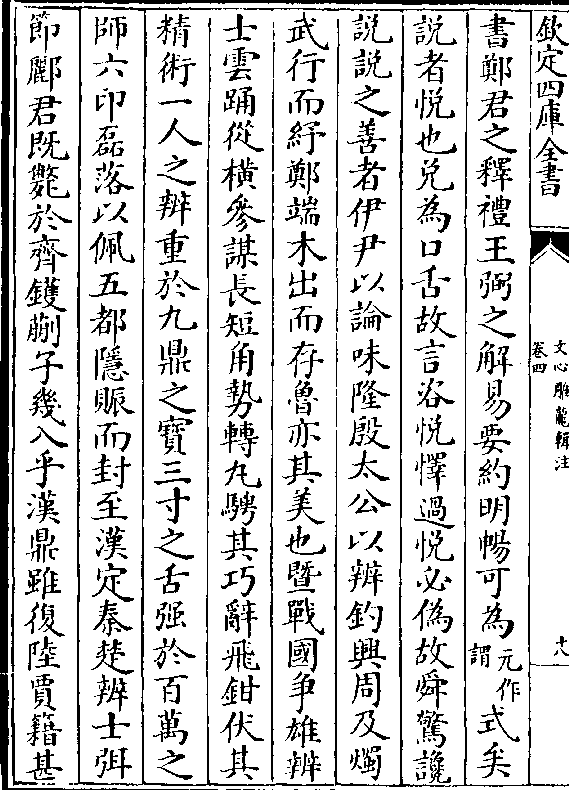 欽定四庫全書
文心雕龍輯注
卷四
十八
書鄭君之釋禮王弼之解易要約明暢可為元作謂式矣
説者悦也兑為口舌故言咨悦懌過悦必偽故舜驚讒
説説之善者伊尹以論味隆殷太公以辨釣興周及燭
武行而紓鄭端木出而存魯亦其美也暨戰國争雄辨
士雲踊從横參謀長短角勢轉丸騁其巧辭飛鉗伏其
精術一人之辨重於九鼎之寶三寸之舌强於百萬之
師六印磊落以佩五都隱賑而封至漢定秦楚辨士弭
節酈君既斃於齊鑊蒯子幾入乎漢鼎雖復陸賈籍甚